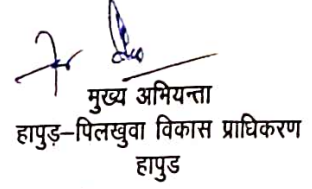 मुख्य अभियन्ता
हापुड़–पिलखुवा विकास प्राधिकरण
हापुड